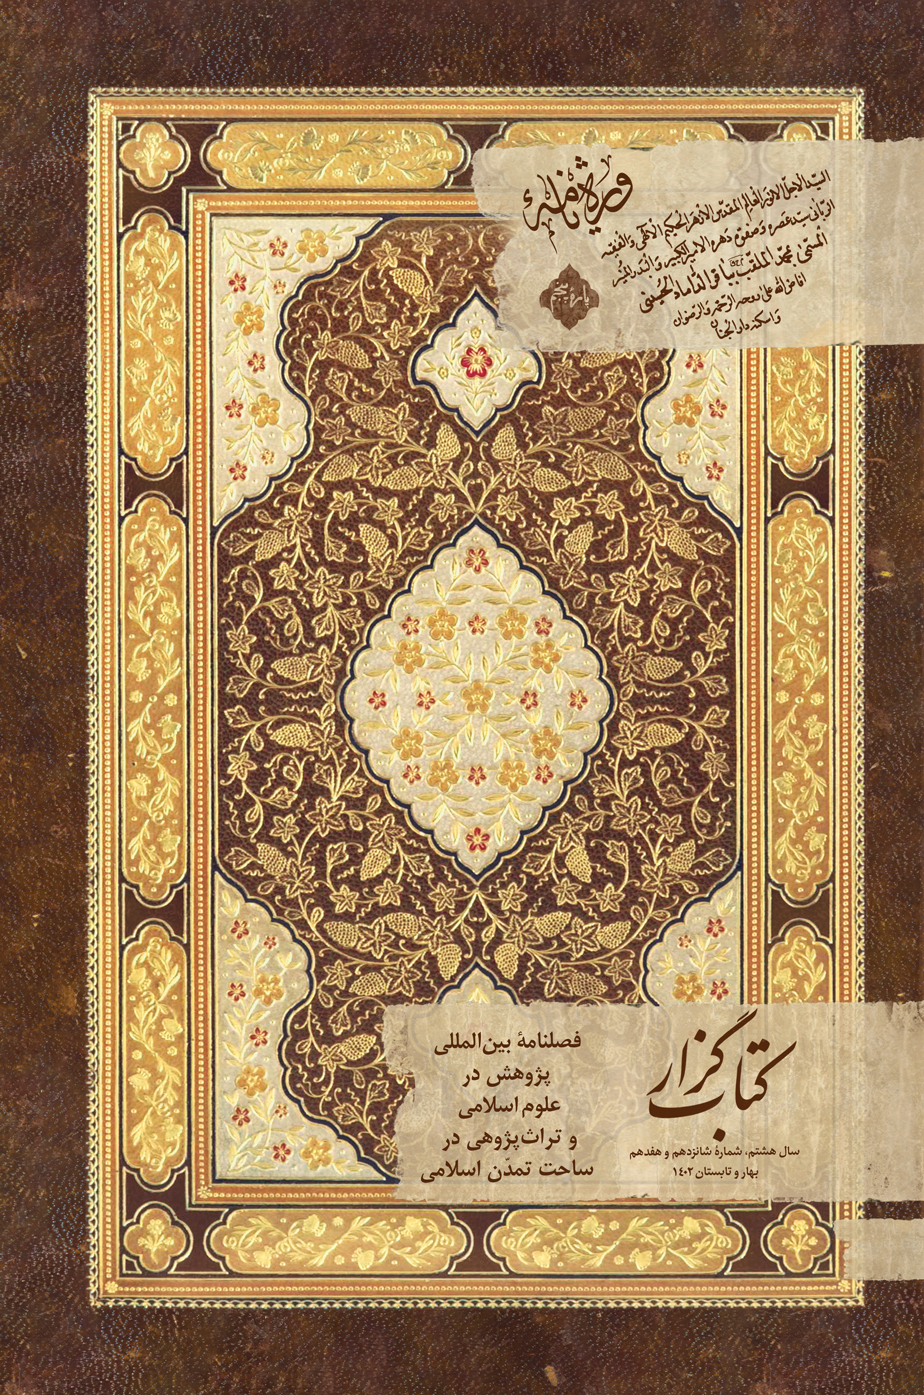 ویژه‌نامهٔ
السیّد الاجلّ الانور العالم المقدّس الازهر الحکیم الالٰهی والفقیه
الربّانی سید عصره وصفوة دهره الامیر الکبیر والبدر المنیر
محمّد الملقّب بباقر الداماد الحسینی
افاض الله علی روحه الرحمة والرضوان
واسکنه دار الجنان
کتاب گزار
سال هشتم، شمارهٔ شانزدهم و هفدهم
بهار و تابستان ۱۴۰۲
فصلنامهٔ بین‌المللی
پژوهش در
علوم اسلامی
و تراث‌پژوهی در
ساحت تمدّن اسلامی